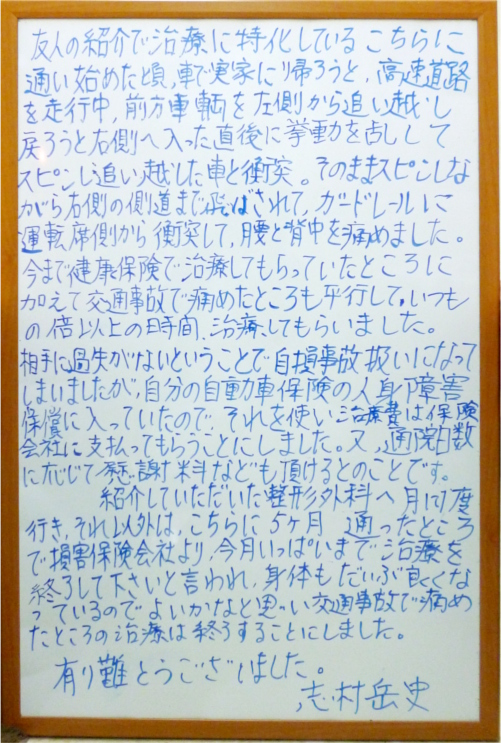 友人の紹介で治療に特化しているこちらに
通い始めた頃,車で実家に帰ろうと,高速道路
を走行中,前方車輌を左側から追い越し
戻ろうと右側へ入った直後に挙動を乱して
スピンし追い越した車と衝突。そのままスピンしな
がら右側の側道まで飛ばされて,ガードレールに
運転席側から衝突して,腰と背中を痛めました。
今まで健康保険で治療してもらっていたところに
加えて交通事故で痛めたところも平行して,いつも
の倍以上の時間,治療してもらいました。
相手に過失がないということで自損事故扱いになって
しまいましたが,自分の自動車保険の人身障害
保償に入っていたので,それを使い治療費は保険
会社に支払ってもらうことにしました。又,通院日数
に応じて慰謝料なども頂けるとのことです。
紹介していただいた整形外科へ月に1度
行き,それ以外は,こちらに5ヶ月 通ったところ
で損害保険会社より,今月いっぱいまで治療を
終了して下さいと言われ,身体もだいぶ良くな
っているのでよいかなと思い交通事故で痛め
たところの治療は終了することにしました。
有り難とうございました。
志村岳史